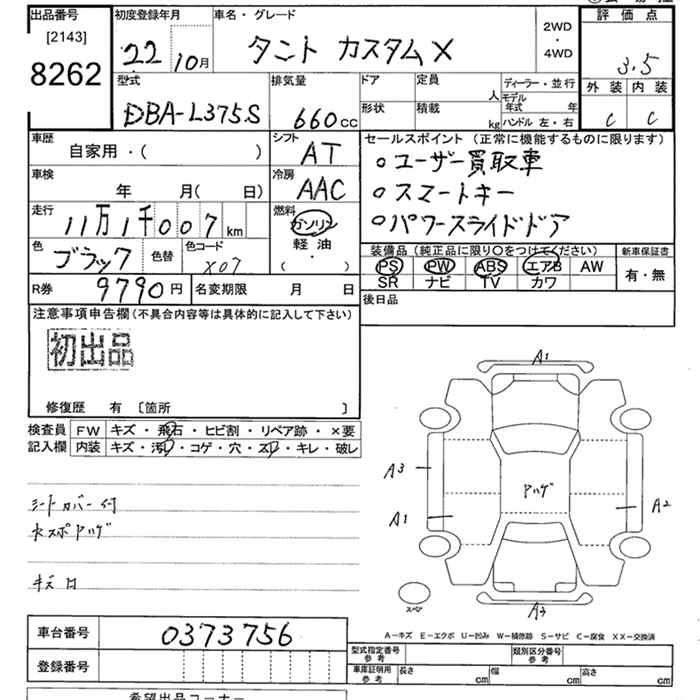 出品番号
[2143]
8262
初度登録年月
22 10月
車名・グレード
タント カスタムX
2WD
・
4WD
評価点
3.5
外装 内装
C C
型式
DBA-L375S
排気量
660cc
ドア
形状
定員
人
積載
kg
ディーラー・並行
モデル年式 年
ハンドル 左・右
車歴
自家用・( )
シフト
AT
車検
年 月( 日)
冷房
AAC
走行
11万1千007km
燃料
ガソリン
軽油
( ・ )
色
ブラック
色替
色コード
X07
R券
9790円
名変期限 月 日
セールスポイント(正常に機能するものに限ります)
○ユーザー買取車
○スマートキー
○パワースライドドア
装備品(純正品に限り〇をつけてください)
新車保証書
PS PW ABS エアB AW
SR ナビ TV カワ
有・無
後日品
注意事項申告欄(不具合内容等は具体的に記入して下さい)
初出品
修復歴 有 〔箇所 〕
検査員記入欄
FW キズ・飛石・ヒビ割・リペア跡・×要
内装 キズ・汚れ・コゲ・穴・スレ・キレ・破レ
シートカバー付
水スポヤケ
キズ
A1
A3
A1
A2
A3
スペア
A－キズ E－エクボ U－凹み W－補修跡 S－サビ C－腐食 XX－交換済
車台番号
0373756
登録番号
型式指定番号
参考
類別区分番号
参考
車庫証明用
参考
長さ cm
幅 cm
高さ cm
希望出品コーナー